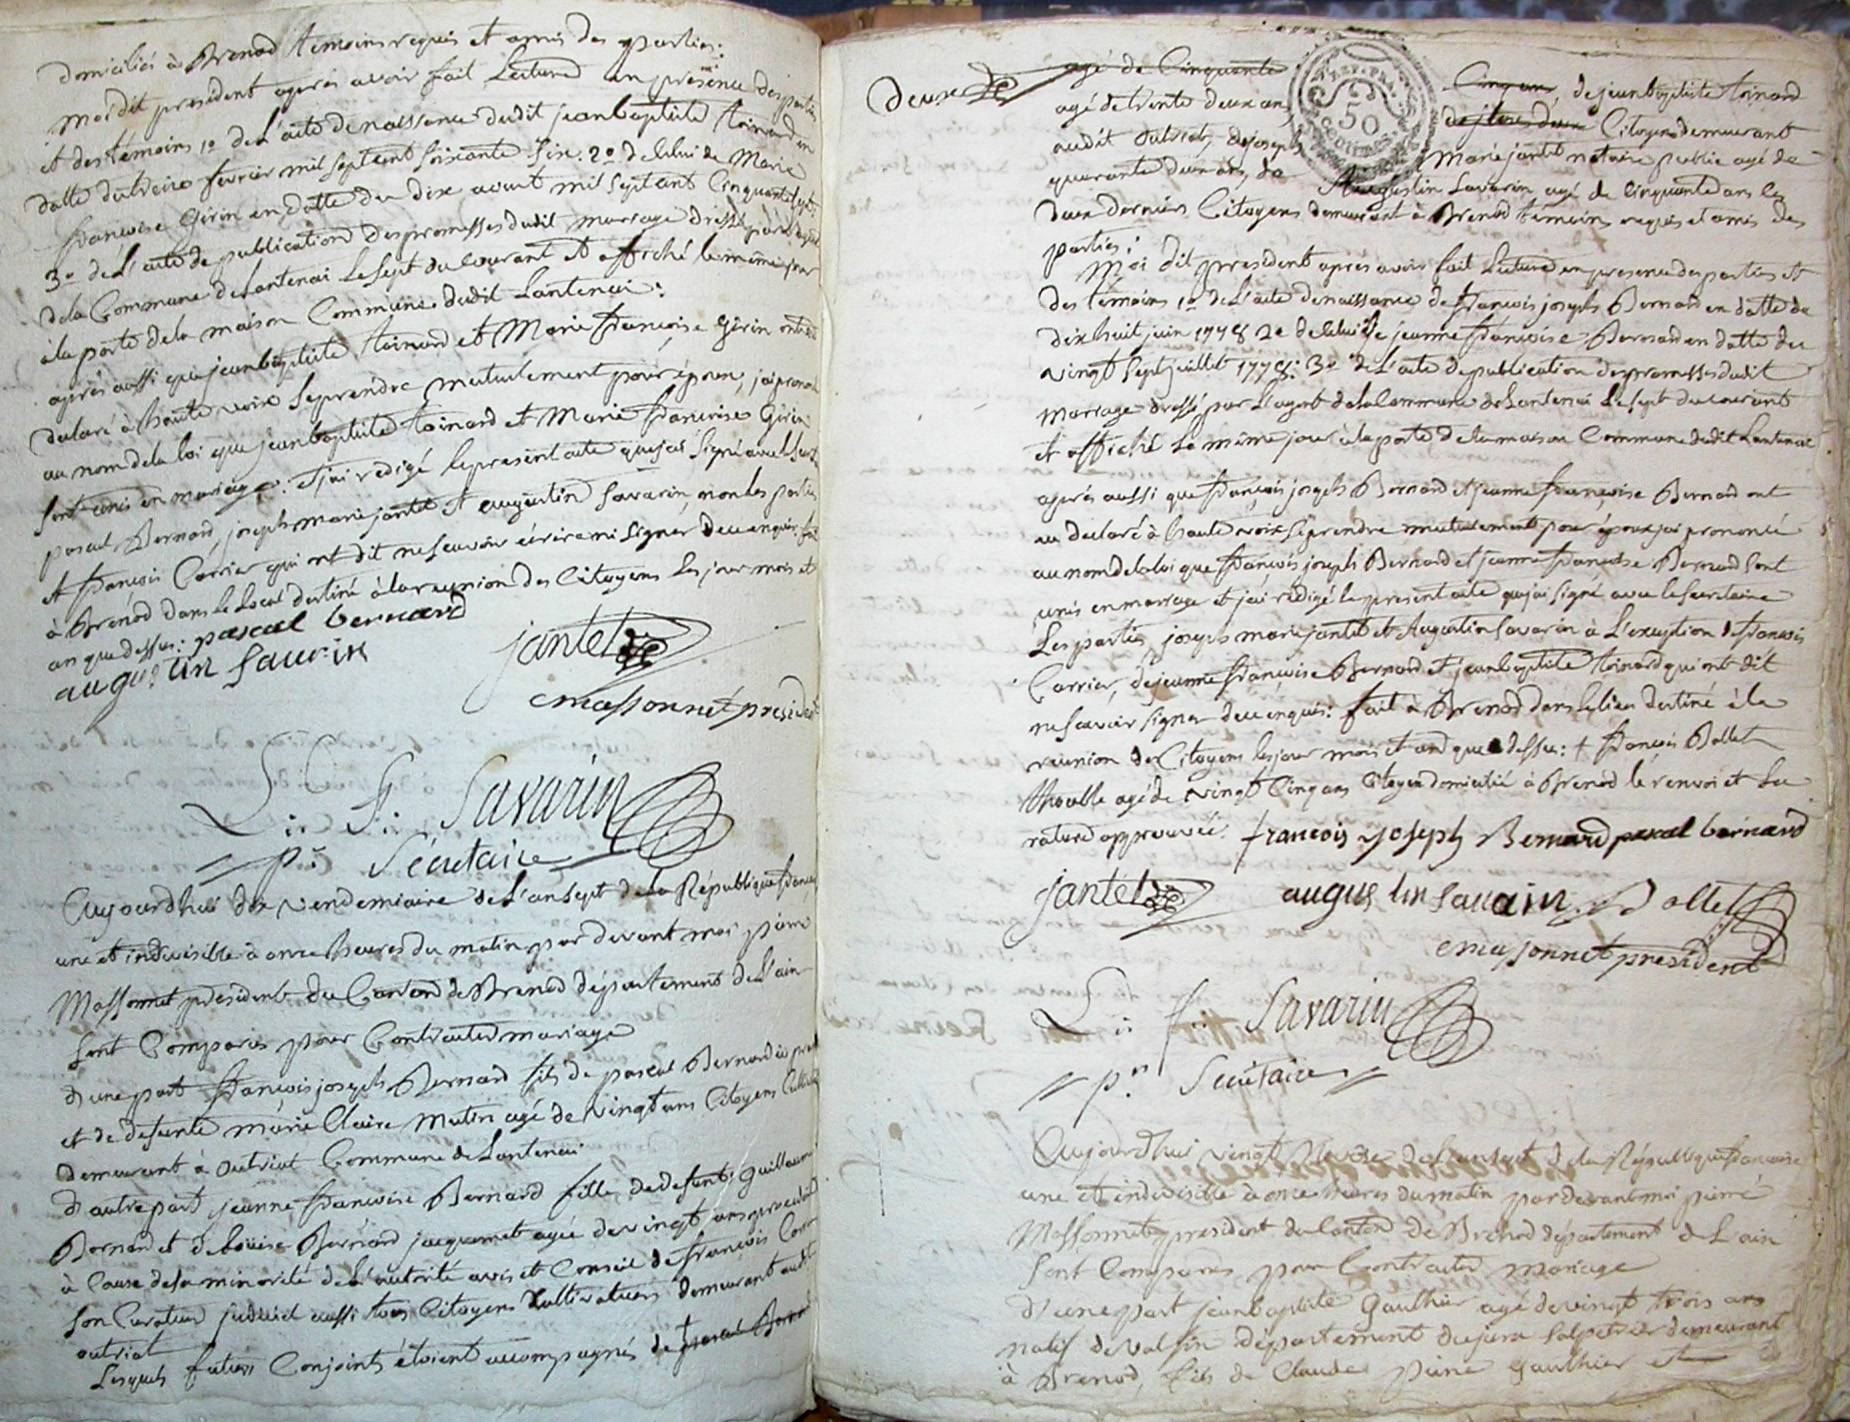 domiciliés à Brenod témoins requis et amis des parties:
Moi dit president après avoir fait Lecture en presence des parties
et des témoins 1o de L'acte de naissance dudit jeanbaptiste toinard en
datte du treize fevrier mil septcent soixante six: 2o de celui de Marie
françoise Girin en datte du dix aout mil septcent Cinquante sept:
3o de L'acte de publication des promesses dudit mariage dressé par L'agent
de la Commune de Lantenai Le sept du courant et affiché le même jour
à la porte de la maison Commune dudit Lantenai:
après aussi que jeanbaptiste toinard et Marie françoise Girin ont eu
declaré à haute voix se prendre mutuelement pour époux, j'ai prononcé
au nom de la loi que jeanbaptiste toinard et Marie françoise Girin
sont unis en mariage. et j'ai rédigé le present acte que j'ai signé avec
pascal Bernard, joseph marie jantet et augustin Savarin, non les parties
et françois Carrier qui ont dit ne scavoir écrire ni signer de ce enquis. fait
à Brenod dans le Local destiné à la reunion des Citoyens les jour mois et
an que dessus: pascal bernard
augustin Savarin jantet
massonnet president
L: F: Savarin
pr: Sécretaire
Aujourd'hui dix vendemiaire de L'an sept de la République française
une et indivisible à onze heures du matin par devant moi pierre
Massonnet président du Canton de Brenod département de L'ain
sont Comparus pour Contracter mariage
d'une part françois joseph Bernard fils de pascal Bernard ici present
et de defunte marie Claire Mutin agé de vingt ans Citoyens
demeurant à outriat Commune de Lantenai
d'autre part jeanne françoise Bernard fille de defunt guillaume
Bernard et de Louise Bernard jacquemet agée de vingt ans procedant
à Cause de sa minorité de L'autorité avis et Conseil de françois Carrier
son Curateur judiciel aussi tous Citoyens Cultivateurs demeurant audit
outriat
Lesquels futurs Conjoints étoient accompagnés de pascal Bernard
Deux agé de Cinquante Cinq ans, de jeanbaptiste toinard
agé de trente deux ans Citoyens demeurant
audit outriat, de joseph Marie jantet notaire public agé de
quarante deux ans, de Augustin Savarin agé de Cinquante ans les
deux derniers Citoyens demeurant à Brenod témoins requis et amis des
parties:
Moi dit president après avoir fait Lecture en presence des parties et
des temoins 1o de L'acte de naissance de françois joseph Bernard en datte du
dix huit juin 1778 2o de celui de jeanne françoise Bernard en datte du
vingt sept juillet 1778: 3o de L'acte de publication des promesses dudit
marriage dressé par L'agent de la Commune de Lantenai Le sept du courant
et affiché Le même jour à la porte de la maison Commune dudit Lantenai
après aussi que françois joseph Bernard et jeanne françoise Bernard ont
eu declaré à haute voix se prendre mutuelement pour époux j'ai prononcé
au nom de la loi que françois joseph Bernard et jeanne françoise Bernard sont
unis en marriage et j'ai rédigé le present acte que j'ai signé avec le Secretaire
Les parties, joseph marie jantet et Augustin Savarin à L'exception de françois
Carrier, de jeanne françoise Bernard et jeanbaptiste toinard qui ont dit
ne scavoir signer de ce enquis: fait à Brenod dans le lieu destiné à la
reunion des Citoyens les jour mois et an que dessus: † françois Ballet
agé de vingt Cinq ans Citoyen domicilié à Brenod le renvoi et La
rature approuvée: francois joseph Bernard pascal bernard
jantet augustin Savarin Ballet
massonnet president
L: f: Savarin
pr: Secrétaire
Aujourd'hui vingt Nivose de L'an sept de la République francaise
une et indivisible à onze heures du matin par devant moi pierre
Massonnet president du Canton de Brenod département de L'ain
sont Comparus pour Contracter mariage
d'une part jeanbaptiste Gauthier agé de vingt trois ans
natif de Valfin département du jura Salpetrier demeurant
à Brenod, fils de Claude pierre Gauthier et